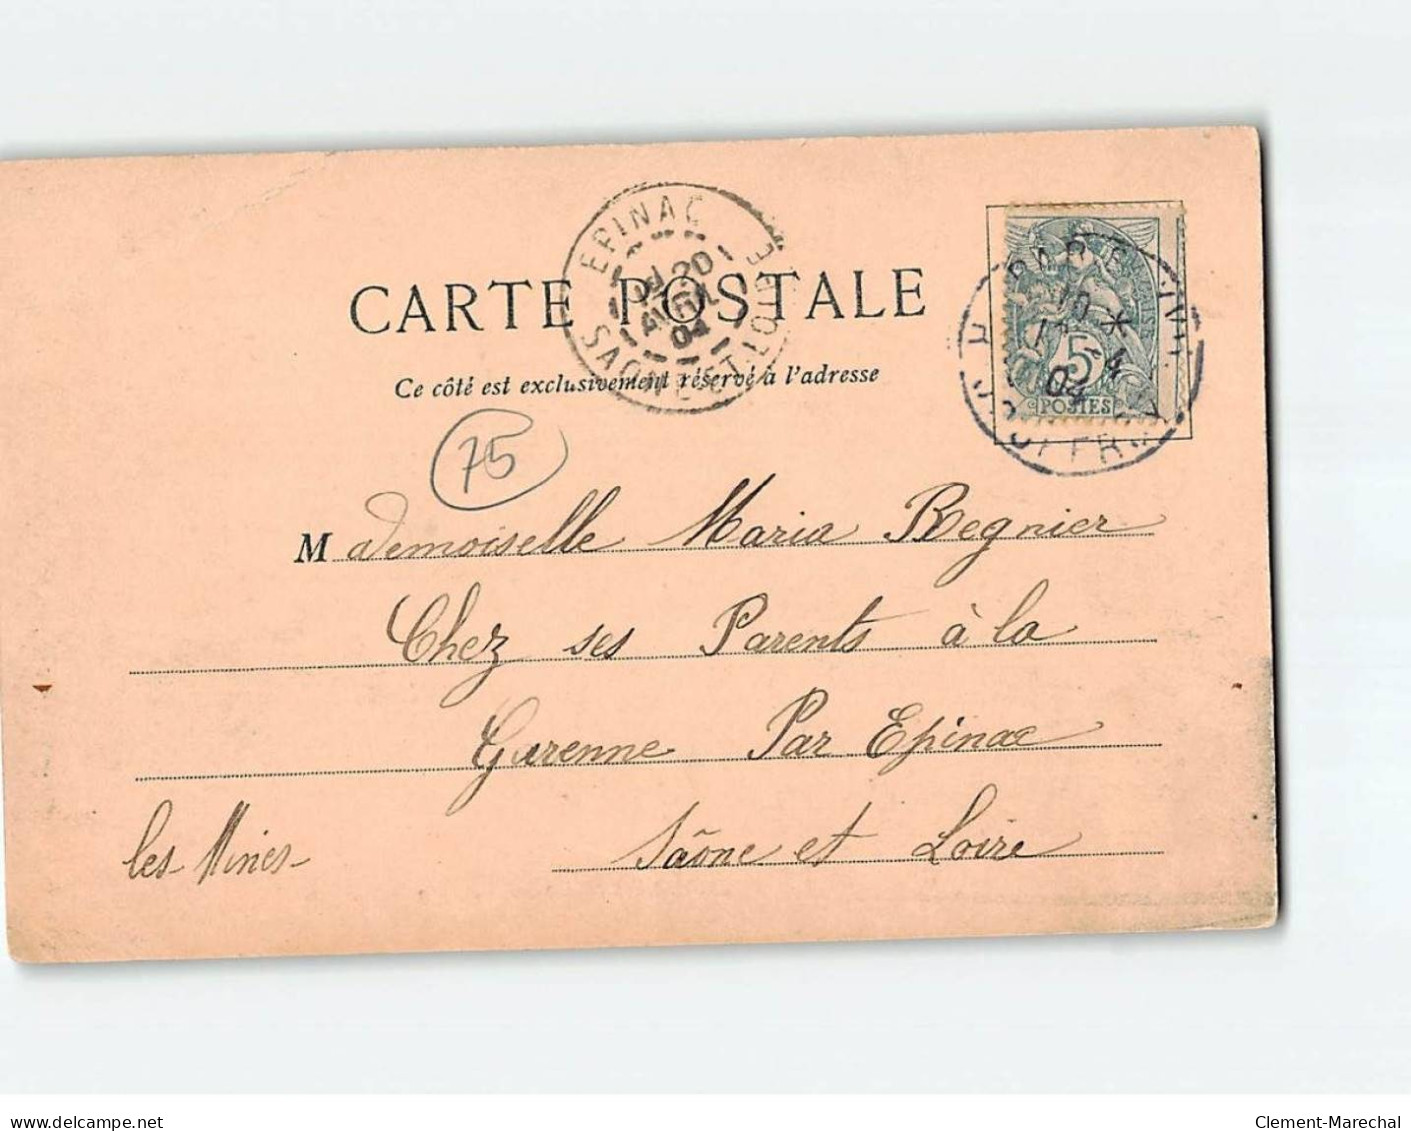 EPINAC
20
AVRIL
04
SAONE-ET-LOIRE
PARIS
* 
04
5
POSTES
CARTE POSTALE
Ce côté est exclusivement réservé à l'adresse
75
Mademoiselle Maria Regnier
Chez ses Parents à la
Garenne Par Epinac
les Mines-
Saône et Loire
delcampe.net
Clement-Marechal